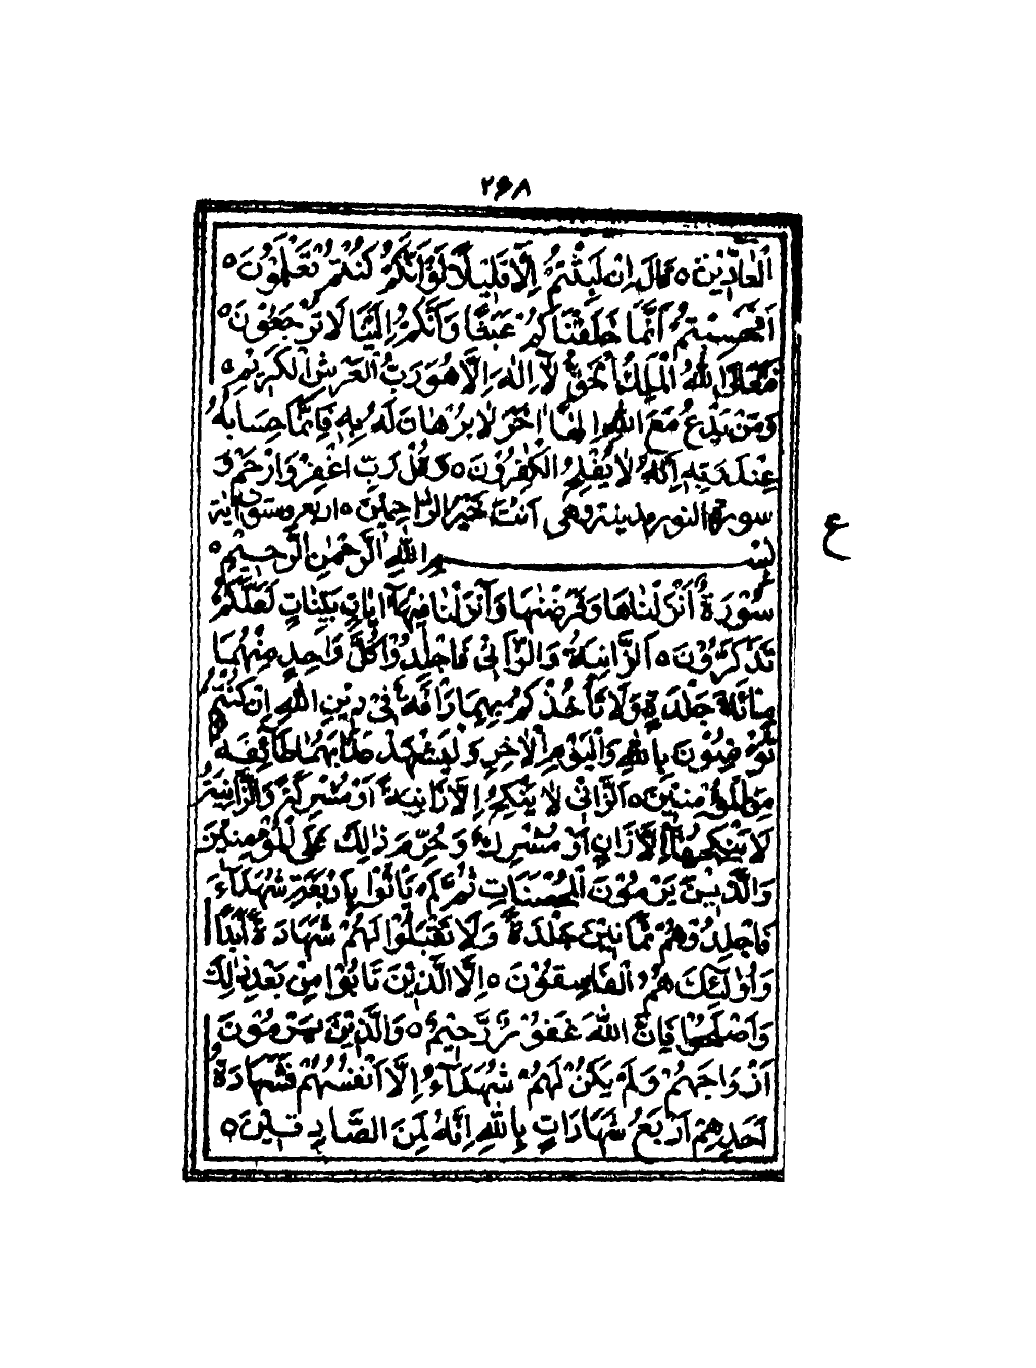 ۲۶۸
الْعَادِّيْنَ ○ قَالَ اِنْ لَبِثْتُمْ اِلَّا قَلِيْلًا لَوْ اَنَّكُمْ كُنْتُمْ تَعْلَمُوْنَ ○
اَفَحَسِبْتُمْ اَنَّمَا خَلَقْنَاكُمْ عَبَثًا وَاَنَّكُمْ اِلَيْنَا لَا تُرْجَعُوْنَ ○
فَتَعَالَى اللهُ الْمَلِكُ الْحَقُّ لَا اِلٰهَ اِلَّا هُوَ رَبُّ الْعَرْشِ الْكَرِيْمِ ○
وَمَنْ يَدْعُ مَعَ اللهِ اِلٰهًا اٰخَرَ لَا بُرْهَانَ لَهُ بِهٖ فَاِنَّمَا حِسَابُهُ
عِنْدَ رَبِّهٖ اِنَّهُ لَا يُفْلِحُ الْكٰفِرُوْنَ ○ وَقُلْ رَبِّ اغْفِرْ وَارْحَمْ وَ
اَنْتَ خَيْرُ الرَّاحِمِيْنَ ○ سورة النور مدينة وهى اربع وستون اية
بِسْمِ اللهِ الرَّحْمٰنِ الرَّحِيْمِ ○
ع
سُوْرَةٌ اَنْزَلْنَاهَا وَفَرَضْنٰهَا وَاَنْزَلْنَا فِيْهَا اٰيَاتٍ بَيِّنَاتٍ لَعَلَّكُمْ
تَذَكَّرُوْنَ ○ اَلزَّانِيَةُ وَالزَّانِىْ فَاجْلِدُوْا كُلَّ وَاحِدٍ مِنْهُمَا
مِائَةَ جَلْدَةٍ وَلَا تَأْخُذْكُمْ بِهِمَا رَأْفَةٌ فِىْ دِيْنِ اللهِ اِنْ كُنْتُمْ
تُؤْمِنُوْنَ بِاللهِ وَالْيَوْمِ الْاٰخِرِ وَلْيَشْهَدْ عَذَابَهُمَا طَائِفَةٌ
مِنَ الْمُؤْمِنِيْنَ ○ اَلزَّانِىْ لَا يَنْكِحُ اِلَّا زَانِيَةً اَوْ مُشْرِكَةً وَالزَّانِيَةُ
لَا يَنْكِحُهَا اِلَّا زَانٍ اَوْ مُشْرِكٌ وَحُرِّمَ ذٰلِكَ عَلَى الْمُؤْمِنِيْنَ
وَالَّذِيْنَ يَرْمُوْنَ الْمُحْصَنَاتِ ثُمَّ لَمْ يَأْتُوْا بِاَرْبَعَةِ شُهَدَاءَ
فَاجْلِدُوْهُمْ ثَمَانِيْنَ جَلْدَةً وَلَا تَقْبَلُوْا لَهُمْ شَهَادَةً اَبَدًا
وَاُولٰئِكَ هُمُ الْفَاسِقُوْنَ ○ اِلَّا الَّذِيْنَ تَابُوْا مِنْ بَعْدِ ذٰلِكَ
وَاَصْلَحُوْا فَاِنَّ اللهَ غَفُوْرٌ رَّحِيْمٌ ○ وَالَّذِيْنَ يَرْمُوْنَ
اَزْوَاجَهُمْ وَلَمْ يَكُنْ لَهُمْ شُهَدَاءُ اِلَّا اَنْفُسُهُمْ فَشَهَادَةُ
اَحَدِهِمْ اَرْبَعُ شَهَادَاتٍ بِاللهِ اِنَّهُ لَمِنَ الصَّادِقِيْنَ ○